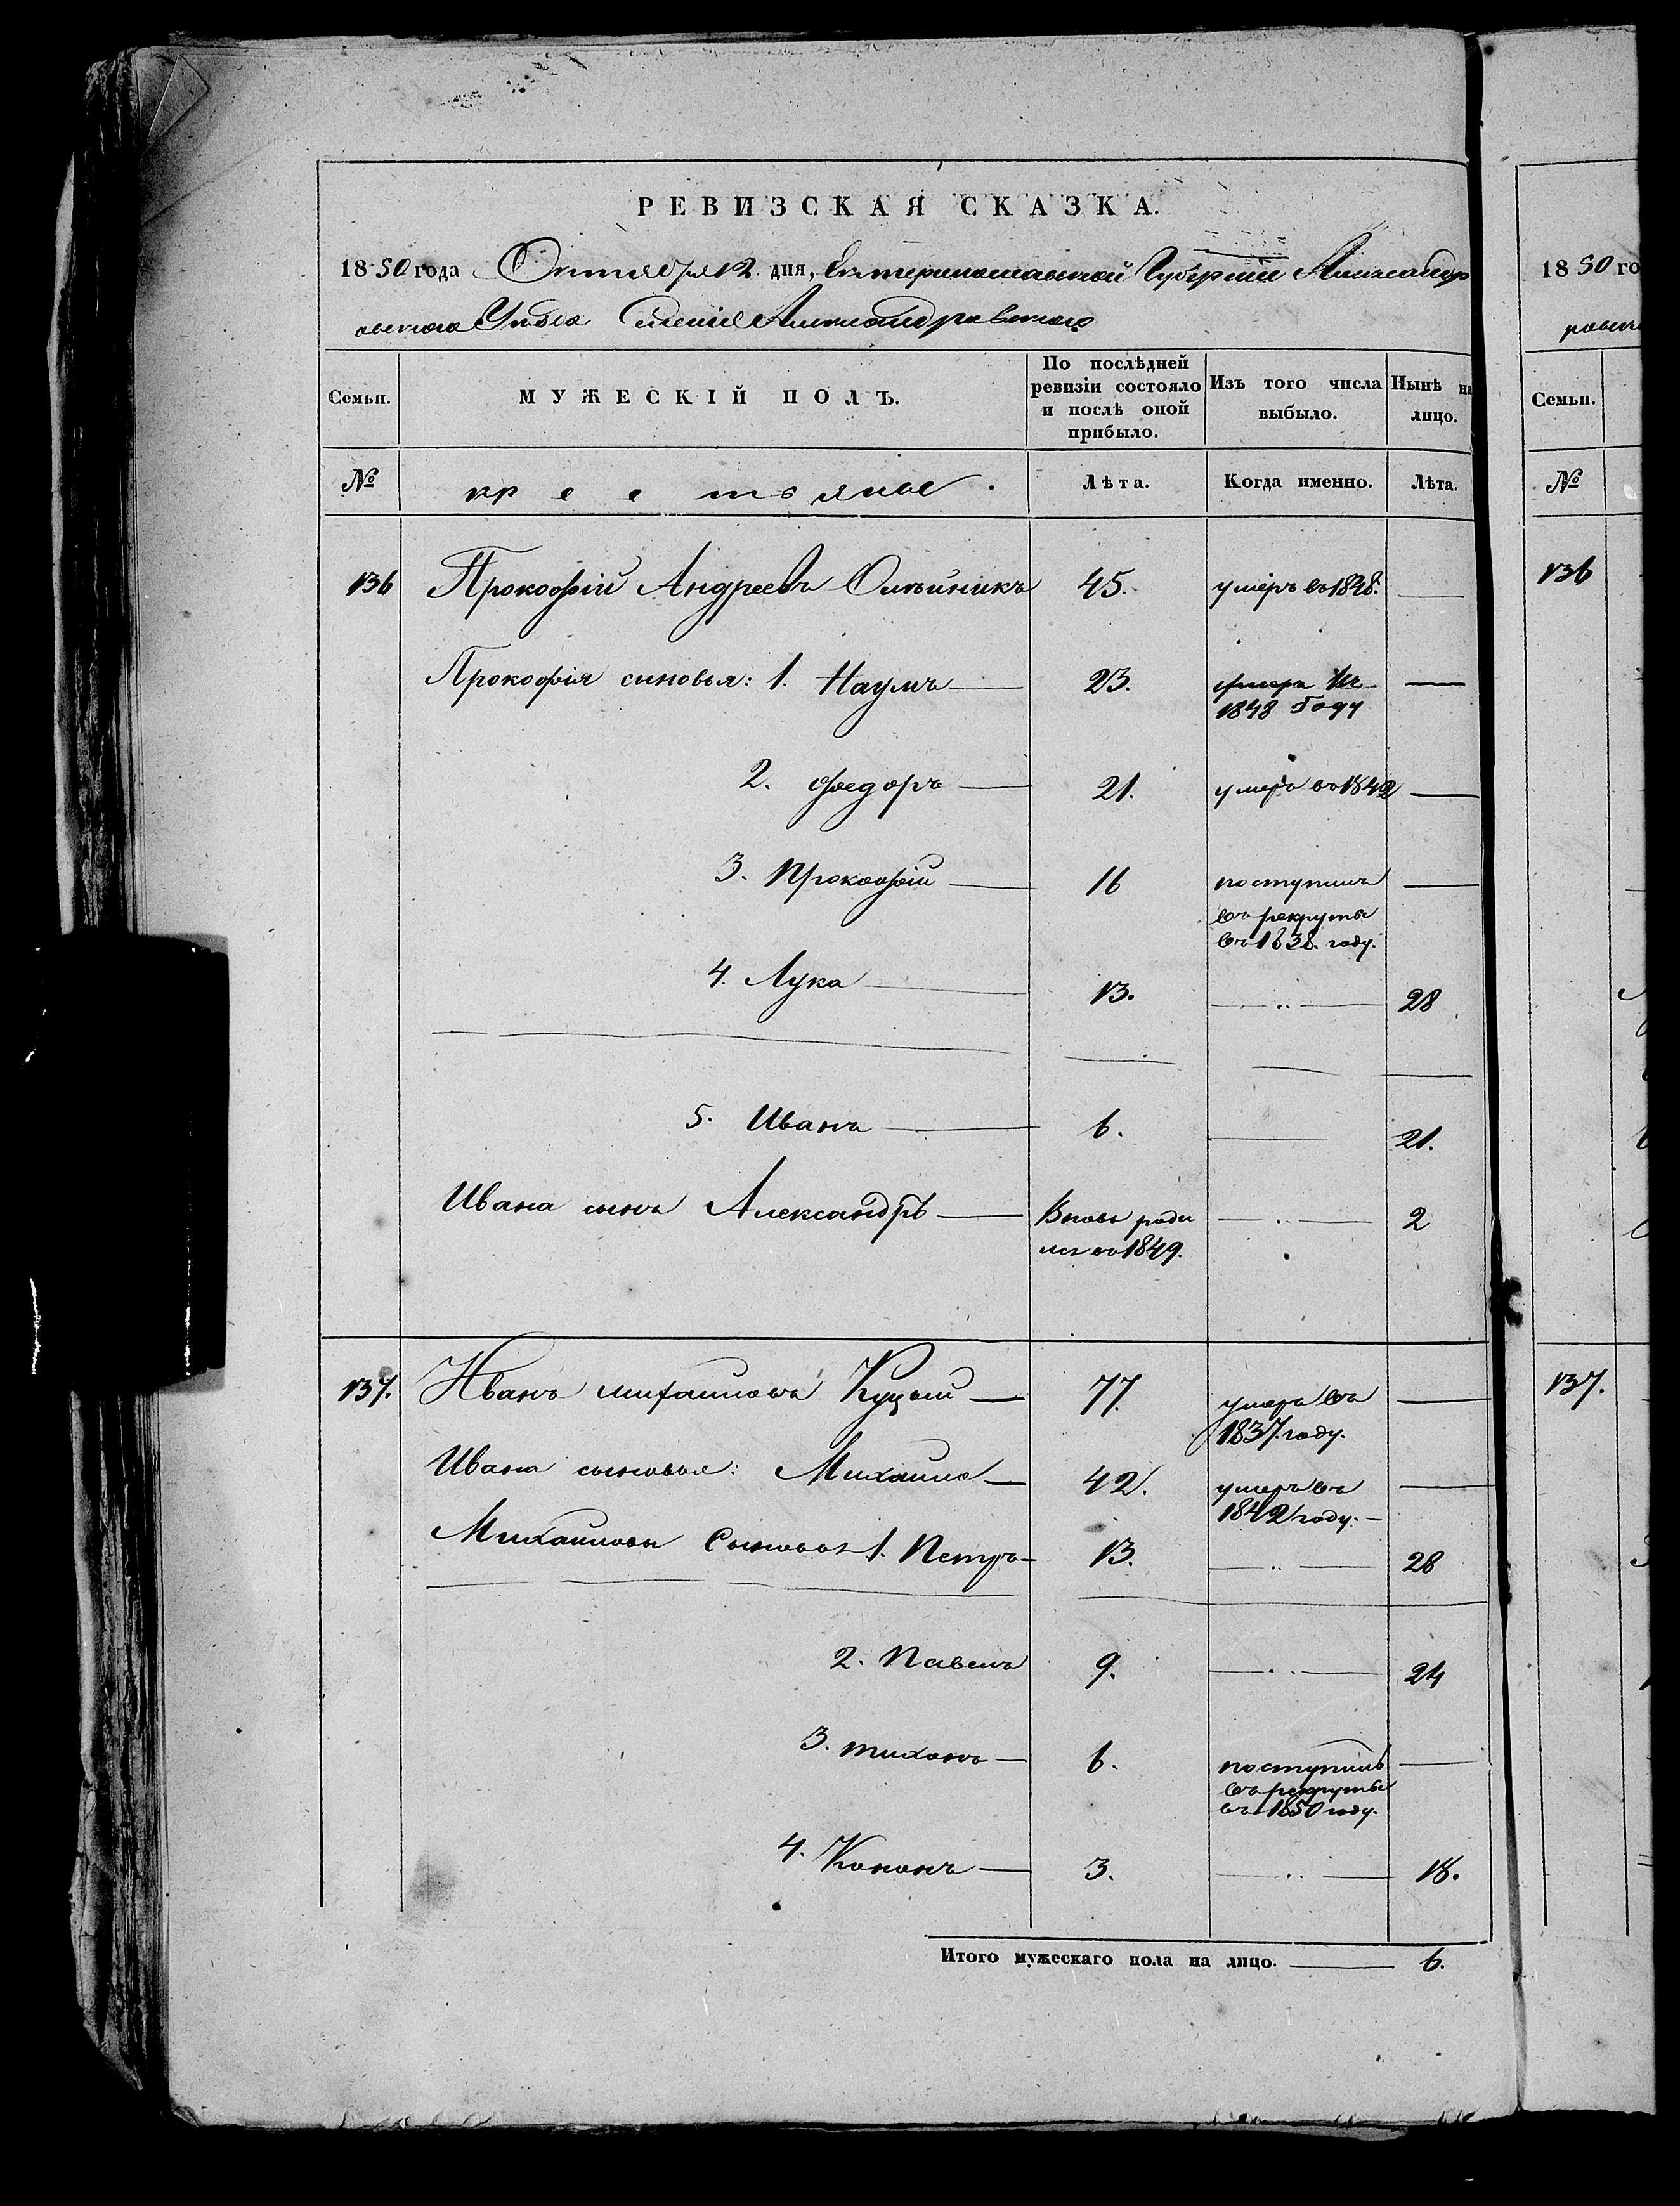 РЕВИЗСКАЯ СКАЗКА.
1850 года Октября 12 дня, Екатеринославской Губерніи Александр
овскаго Уѣзда Селенія Александровскаго
Семьи. МУЖЕСКІЙ ПОЛЪ. По послѣдней ревизіи состояло и послѣ оной прибыло. Изъ того числа выбыло. Нынѣ на лицо.
№ крестьяне. Лѣта. Когда именно. Лѣта.
136 Прокофій Андреевъ Олѣйникъ 45. умеръ въ 1848.
Прокофія сыновья: 1. Наумъ 23. умеръ въ
1848 году
2. Федоръ 21. умеръ въ 1842
3. Прокофій 16 поступилъ
въ рекруты
въ 1838 году.
4. Лука 13. 28
5. Иванъ 6. 21.
Ивана сынъ Александръ Вновь роди 2
лся въ 1849.
137. Иванъ Михаиловъ Куцый 77. умеръ въ
1837 году.
Ивана сыновья: Михаило 42. умеръ въ
1842 году.
Михаиловы Сыновья 1. Петръ 13. 28
2. Павелъ 9. 24
3. Тихонъ 6. поступилъ
въ рекруты
въ 1850 году.
4. Кононъ 3. 18.
Итого мужескаго пола на лицо. 6.
1850 го
ровск
Семьи.
№
136
137.